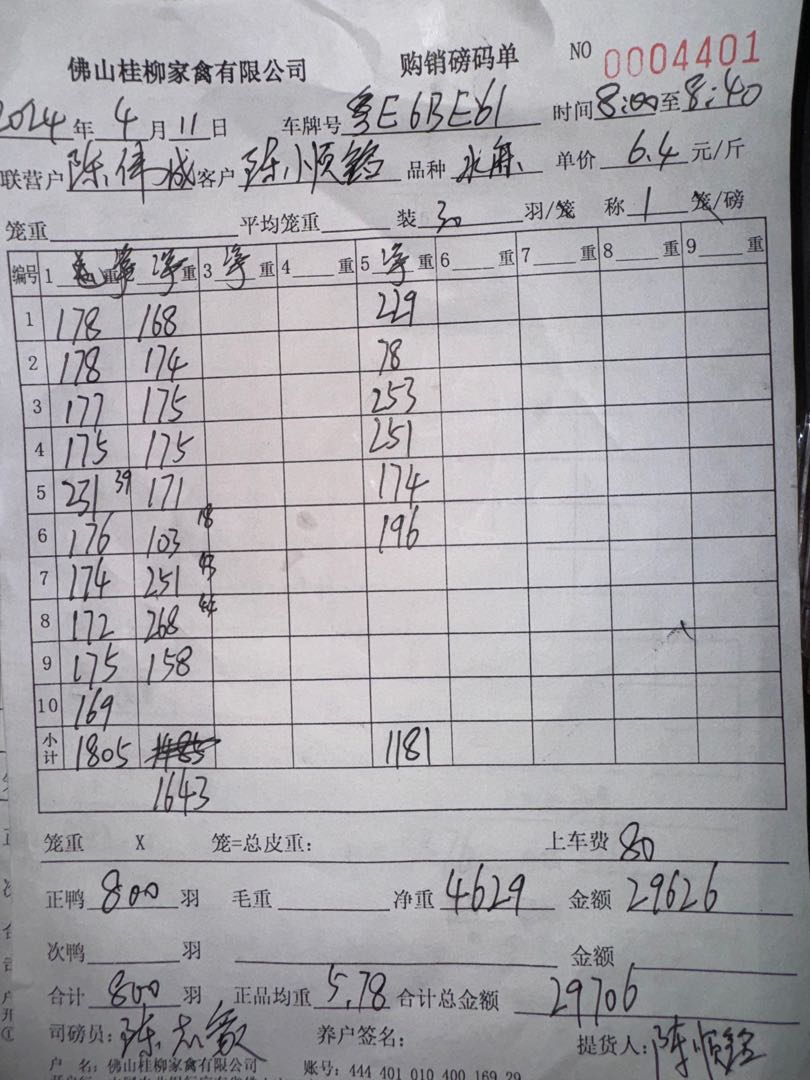 佛山桂柳家禽有限公司 购销磅码单 NO 0004401
2024年4月11日 车牌号 粤E6BE61 时间8:00至8:40
联营户 陈伟成 客户 陈顺 品种 单价 6.4 元/斤
笼重 平均笼重 装 30 羽/笼 称 1 笼/磅
编号 1 净重 净重 3 净重 4 重 5 净重 6 重 7 重 8 重 9 重
1 178 168 229
2 178 174 78
3 177 175 253
4 175 175 251
5 231 39 171 174
6 176 103 18 196
7 174 251 43
8 172 268 44
9 175 158
10 169
小计 1805 1181
1643
笼重 X 笼=总皮重: 上车费 80
正鸭 800 羽 毛重 净重 4629 金额 29626
次鸭 羽 金额
合计 800 羽 正品均重 5.78 合计总金额 29706
司磅员: 陈志敏 养户签名: 提货人: 陈顺
户 名: 佛山桂柳家禽有限公司 账号: 444 401 010 400 169 29